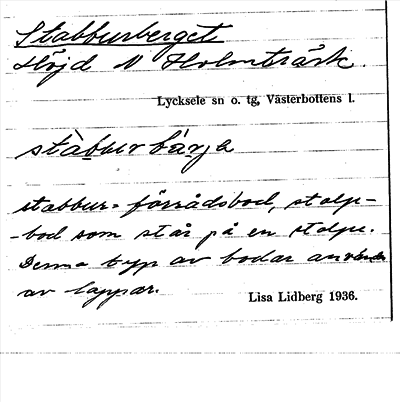 Stabburberget
Höjd N Holmträsk.
Lycksele sn o. tg, Västerbottens l.
stàbbur bärja
stabbur = förrådsbod, stolp-
-bod som står på en stolpe.
Denna typ av bodar användes
av lappar.
Lisa Lidberg 1936.